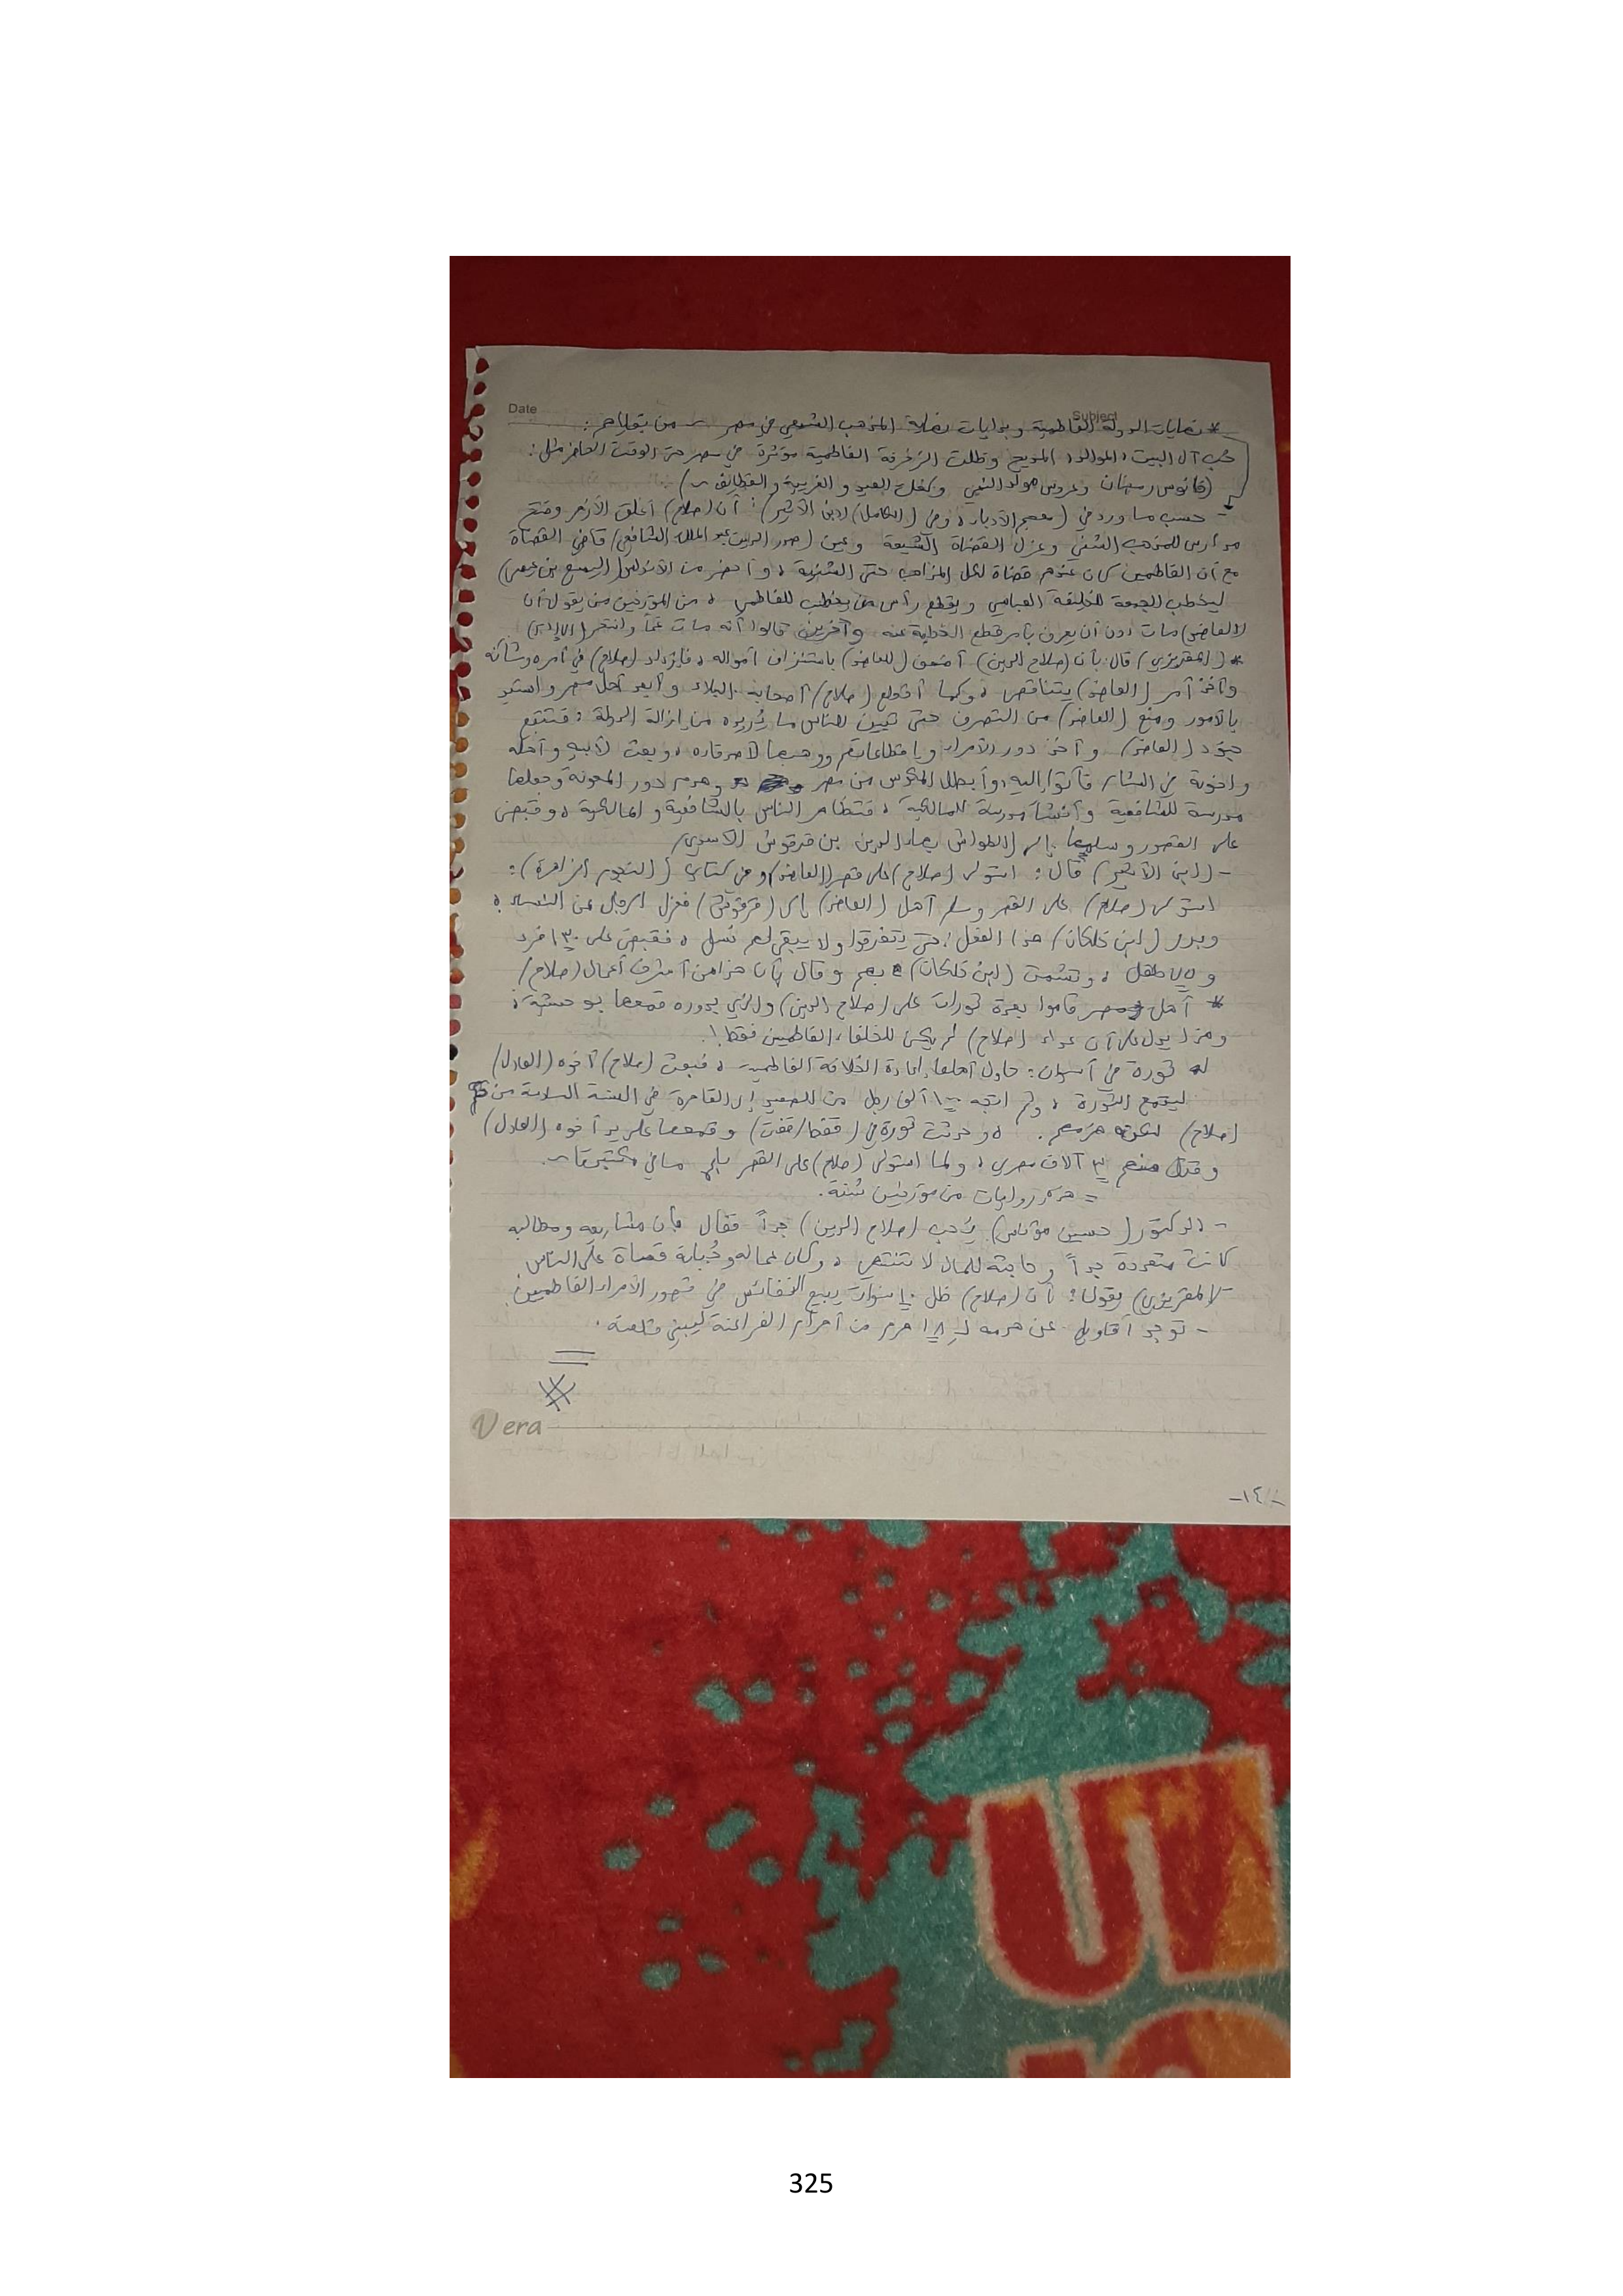 Date Subject
* نهايات الدولة الفاطمية وبدايات نهاية المذهب الشيعي في مصر ~ من بقاياهم:
حب آل البيت، الموالد، المديح وظلت الزخرفة الفاطمية مؤثرة في مصر حتى الوقت الحاضر مثل:
(فانوس رمضان وعروس مولد النبي وكحك العيد و الغريبة والقطايف ~)
- حسب ما ورد في (معجم الأدباء، وفي (الكامل) لابن الأثير): أن (صلاح) أغلق الأزهر وفتح
مدارس للمذهب السني وعزل القضاة الشيعة وعين (صدر الدين عبد الملك الشافعي) قاضي القضاة
مع أن الفاطميين كان عندهم قضاة لكل المذاهب حتى السنية، وأحضر من الأندلس (اليسع بن
ليخطب الجمعة للخليفة العباسي ويقطع رأس من يخطب للفاطمي، من المؤرخين من يقول أن
(العاضد) مات دون أن يعرف بأمر قطع الخطبة عنه وآخرين قالوا أنه مات غماً وانتحر
* (المقريزي) قال: بأن (صلاح الدين) أضعف (العاضد) باستنزاف أمواله، فازداد (صلاح) في أمره وشأنه
وأخذ أمر (العاضد) يتناقص، وكما أقطع (صلاح) أصحابه البلاد وأبعد أهل مصر واستبد
بالأمور ومنع (العاضد) من التصرف حتى تبين للناس ما يُريده من إزالة الدولة، فتتبع
جنود (العاضد) وأخذ دور الأمراء وإقطاعاتهم ووهبها لأصدقاءه، وبعث لأبيه وأهله
وإخوته في الشام فأتوا إليه، وأبطل المكوس من مصر وهدم دور المعونة وجعلها
مدرسة للشافعية وأنشأ مدرسة للمالكية، فتظاهر الناس بالشافعية والمالكية، وقبض
على القصور وسلمها إلى (الطواش بهاء الدين بن قرقوش الأسدي)
- (ابن الأثير) قال: استولى (صلاح) على قصر (العاضد) وفي كتاب (النجوم الزاهرة):
استولى (صلاح) على القصر وسلم أهل (العاضد) إلى (قرقوش) فعزل الرجال عن النساء،
وبرر (ابن خلكان) هذا الفعل: حتى يتفرقوا ولا يبقى لهم نسل، فقبض على ١٣٠ فرد
و ٧٥ طفل، وتشمت (ابن خلكان) بهم وقال بأن هذا من أشرف أعمال (صلاح)
* أهل مصر قاموا بعدة ثورات على (صلاح الدين) والذي بدوره قمعها بوحشية،
وهذا يدل على أن عداء (صلاح) لم يكن للخلفاء الفاطميين فقط!.
ثورة في أسوان: حاول أهلها إعادة الخلافة الفاطمية، فبعث (صلاح) أخوه (العادل)
ليقمع الثورة، ثم اتجه ١٠٠ ألف رجل من الصعيد إلى القاهرة في السنة السادسة من
(صلاح) لكنه هزمهم. ، وحدثت ثورة في (قفط/قفت) وقمعها على يد أخوه (العادل)
وقتل منهم ٣ آلاف مصري، ولما استولى (صلاح) على القصر باع ما في مكتبتها ~.
= هذه روايات من مؤرخين سُنة.
- الدكتور (حسين مؤنس) يُحب (صلاح الدين) جداً فقال بأن مشاريعه ومطالبه
كانت متعددة جداً وحاجته للمال لا تنتهي، وكان عماله وجُباته قساة على الناس
- (المقريزي) يقول: أن (صلاح) ظل ١٠ سنوات يبيع النفائس في قصور الأمراء الفاطميين.
- توجد أقاويل عن هدمه لـ ١٨ هرم من أهرام الفراعنة ليبني قلعته.
Vera
-١٤-
325